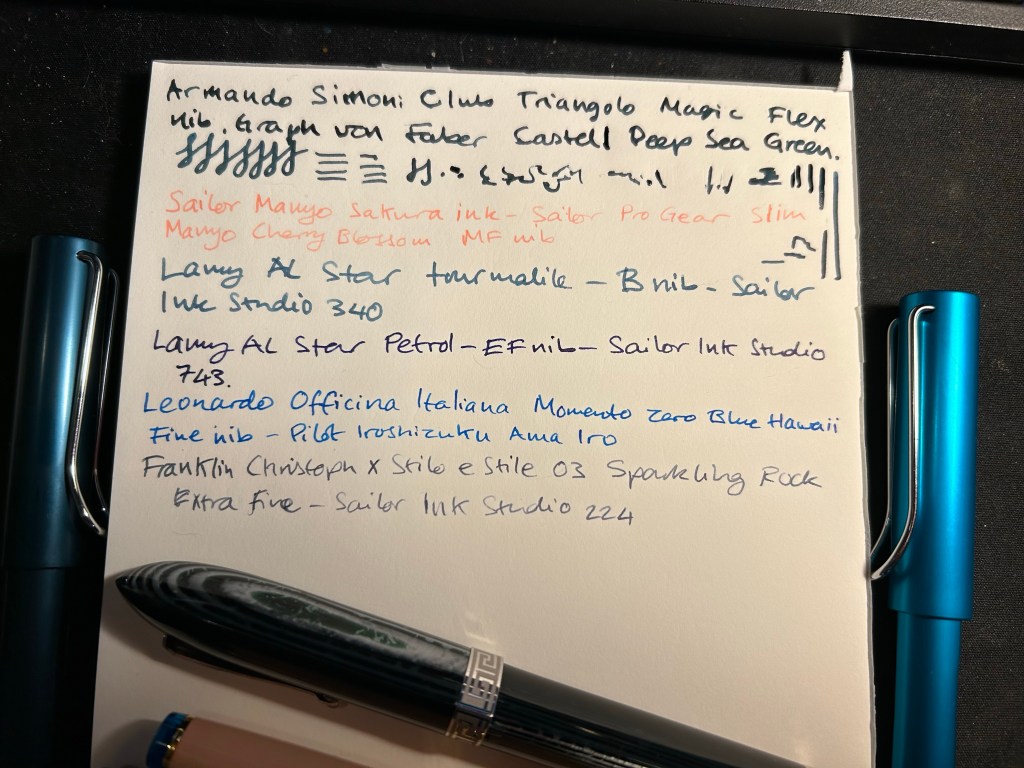 Armando Simoni Club Triangolo Magic Flex
nib. Graph von Faber Castell Deep Sea Green.
Sailor Manyo Sakura ink - Sailor Pro Gear Slim
Manyo Cherry Blossom MF nib
Lamy AL Star tourmalile - B nib - Sailor
Ink Studio 340
Lamy AL Star Petrol - EF nib - Sailor Ink Studio
743.
Leonardo Officina Italiana Momento Zero Blue Hawaii
Fine nib - Pilot Iroshizuku Ama Iro
Franklin Christoph x Stilo e Stile 03 Sparkling Rock
Extra Fine - Sailor Ink Studio 224